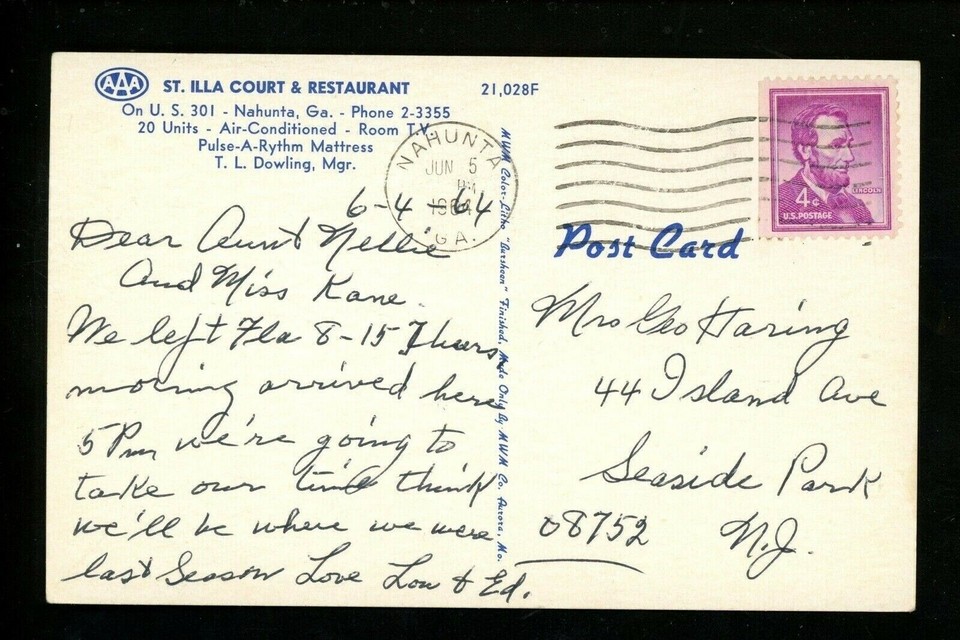 AAA ST. ILLA COURT & RESTAURANT
On U. S. 301 - Nahunta, Ga. - Phone 2-3355
20 Units - Air-Conditioned - Room T.V.
Pulse-A-Rythm Mattress
T. L. Dowling, Mgr.
21,028F
NAHUNTA
JUN 5
PM
1964
GA.
6-4-64
Dear Aunt Nellie
And Miss Kane.
We left Fla 8-15 Thurs.
morning arrived here
5 Pm we're going to
take our time think
we'll be where we were
last Season Love Lou & Ed.
MWM Color-Litho "Barsheen" Finished. Made Only By MWM Co. Aurora, Mo.
LINCOLN
4¢
U.S. POSTAGE
Post Card
Mrs Geo Haring
44 Island Ave
Seaside Park
08752 N.J.